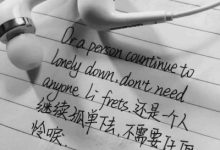 Or a person countinue to
lonely down, don't need
anyone Li frets, 还是一个人
继续孤单下去, 不需要任何
怜哏.